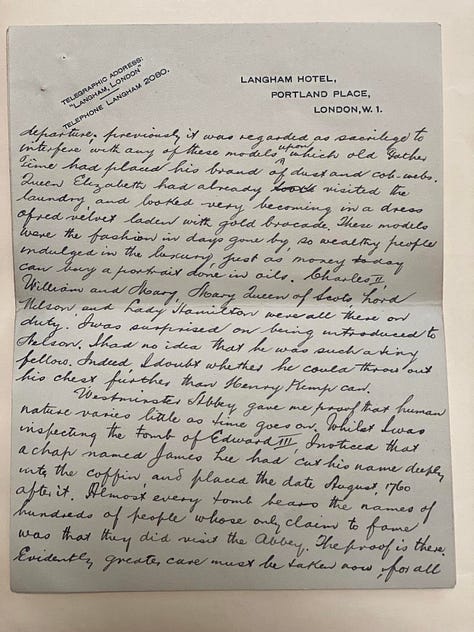 TELEGRAPHIC ADDRESS:
"LANGHAM, LONDON"
TELEPHONE LANGHAM 2080.
LANGHAM HOTEL,
PORTLAND PLACE,
LONDON, W.1.
departure, previously it was regarded as sacrilege to
interfere with any of these models upon which old Father
Time had placed his brand of dust and cob-webs.
Queen Elizabeth had already visited the
laundry, and looked very becoming in a dress
of red velvet laden with gold brocade. These models
were the fashion in days gone by, so wealthy people
indulged in the luxury, just as money today
can buy a portrait done in oils. Charles II,
William and Mary, Mary Queen of Scots, Lord
Nelson, and Lady Hamilton were all there on
duty. I was surprised on being introduced to
Nelson. I had no idea that he was such a tiny
fellow. Indeed I doubt whether he could throw out
his chest further than Henry Kemp can.
Westminster Abbey gave me proof that human
nature varies little as time goes on. Whilst I was
inspecting the tomb of Edward III, I noticed that
a chap named James Lee had cut his name deeply
into the coffin, and placed the date August, 1760
after it. Almost every tomb bears the names of
hundreds of people whose only claim to fame
was that they did visit the Abbey. The proof is there.
Evidently greater care must be taken now, for all